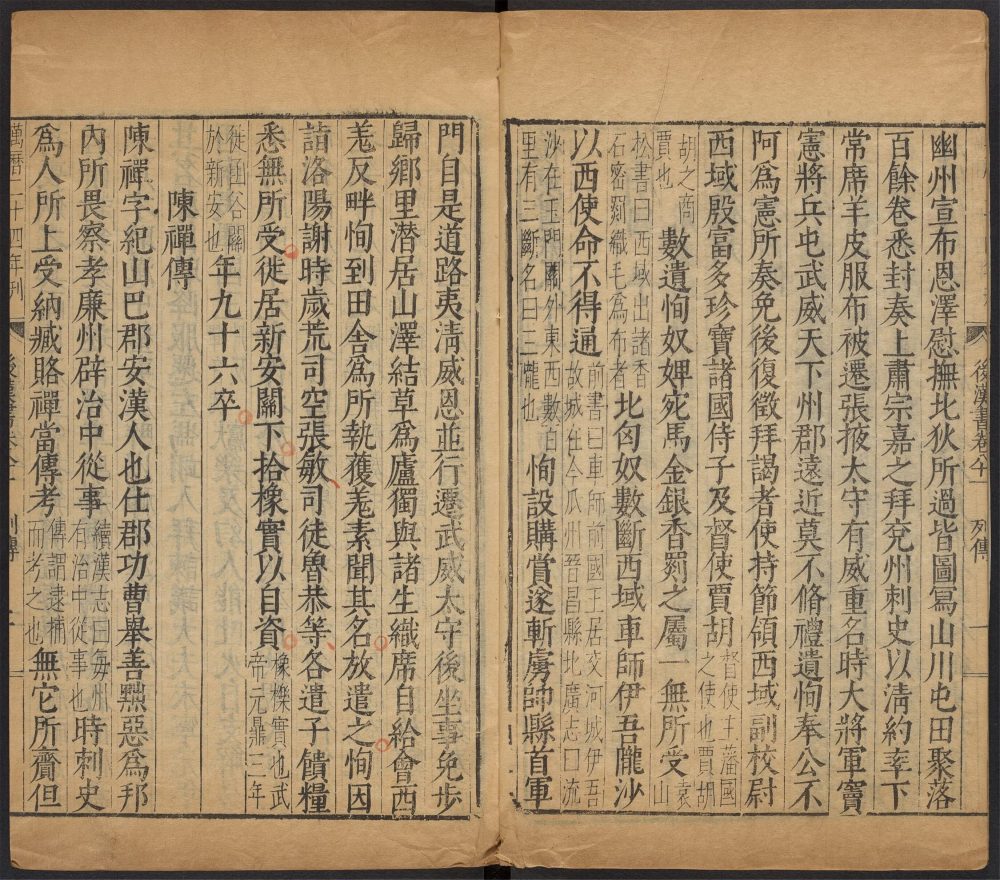 幽州宣布恩澤慰撫北狄所過皆圖寫山川屯田聚落
百餘卷悉封奏上肅宗嘉之拜兗州刺史以清約率下
常席羊皮服布被遷張掖太守有威重名時大將軍竇
憲將兵屯武威天下州郡遠近莫不脩禮遺恂奉公不
阿爲憲所奏免後復徵拜謁者使持節領西域副校尉
西域殷富多珍寶諸國侍子及督使賈胡督使主藩國之使也賈胡
胡之商賈也數遺恂奴婢宛馬金銀香罽之屬一無所受袁山
松書曰西域出諸香石密罽織毛爲布者北匈奴數斷西域車師伊吾隴沙
以西使命不得通前書曰車師前國王居交河城伊吾故城在今瓜州晉昌縣北廣志曰流
沙在玉門關外東西數百里有三斷名曰三隴也恂設購賞遂斬虜帥縣首軍
後漢書卷八十一 列傳
門自是道路夷清威恩並行遷武威太守後坐事免步
歸鄉里潜居山澤結草爲廬獨與諸生織席自給會西
羌反畔恂到田舍爲所執獲羌素聞其名放遣之恂因
詣洛陽謝時歲荒司空張敏司徒魯恭等各遣子饋糧
悉無所受徙居新安關下拾橡實以自資橡櫟實也武帝元鼎三年
徙函谷關於新安也年九十六卒
陳禪傳
陳禪字紀山巴郡安漢人也仕郡功曹舉善黜惡爲邦
內所畏察孝廉州辟治中從事續漢志曰每州有治中從事也時刺史
爲人所上受納臧賂禪當傳考傳謂逮捕而考之也無它所齎但
萬曆二十四年刊 後漢書卷 列傳